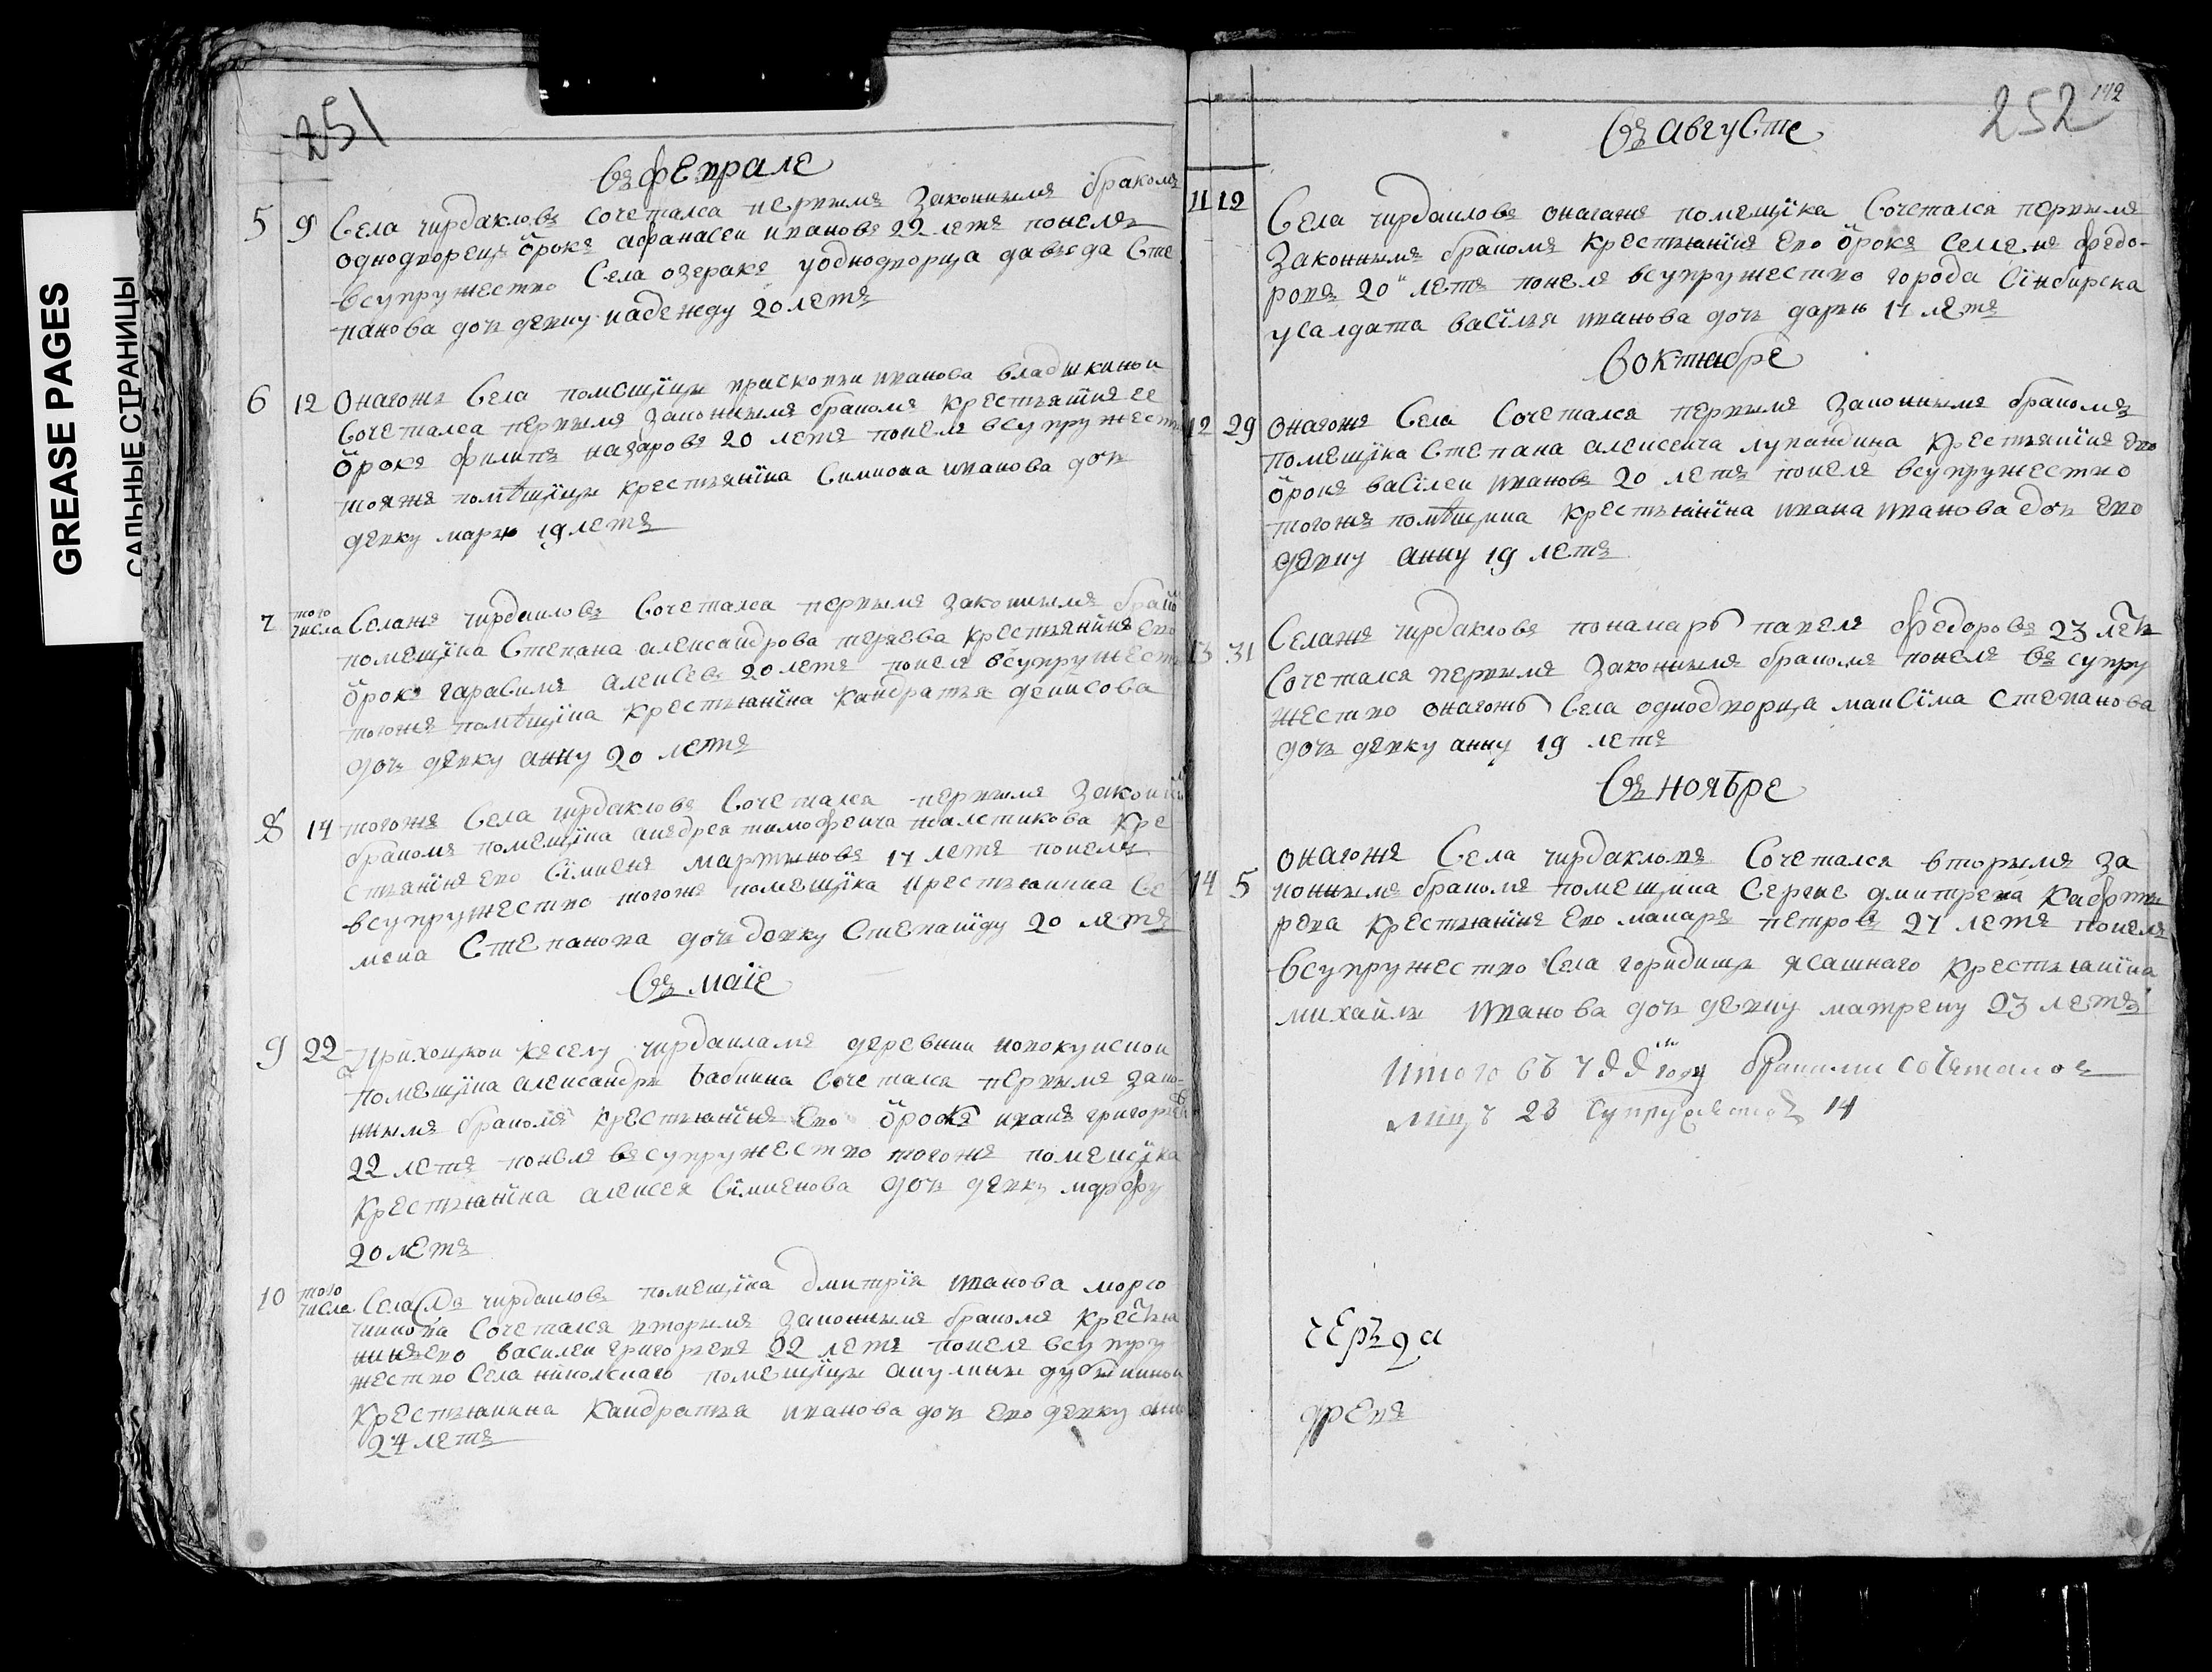 GREASE PAGES
САЛЬНЫЕ СТРАНИЦЫ
251
Въ феврале
5 9 Села чирдаковъ сочетался первымъ законнымъ бракомъ
однодворецъ отрокъ афанасеи ивановъ 22 летъ понелъ
всупружество Села озеракъ у однодворца давыда Сте
панова дочь девку надежду 20 летъ
6 12 Онагожъ Села помещицы прасковьи иванова владыкинои
Сочетался первымъ законнымъ бракомъ крестьянинъ ее
отрокъ филипъ назаровъ 20 летъ понелъ всупружество
тояжъ помѣщицы крестьянина Симиона иванова дочь
девку марю 19 летъ
7 того числа Селажъ чирдаковъ Сочетался первымъ законнымъ брако
помещика Степана александрова крестьянинъ ево
отрокъ гаравилъ алексевъ 20 летъ понелъ всупружество
тогожъ помѣщика крестьянина кандратья денисова
дочь девку анну 20 летъ
8 14 тогожъ Села чирдаковъ Сочетался первымъ законны
бракомъ помещика андрея тимофеича крe
стьянинъ ево Симионъ мартыновъ 17 летъ понелъ
всупружество тогожъ помещика крестьянина Се
мена Степанова дочь девку Степаниду 20 летъ
Въ маïе
9 22 Прихоцкои кселу чирдакламъ деревни
помещика александры бабкина Сочетался первымъ зако
ннымъ бракомъ крестьянинъ ево отрокъ иванъ григорьевъ
22 летъ понелъ въ супружество тогожъ помещика
крестьянина алексея Симионова дочь девку марфу
20 летъ
10 того числа Села чирдаковъ помещика дмитрïя иванова
Сочетался вторымъ законнымъ бракомъ крестья
нинъ ево василеи григорьевъ 22 летъ понелъ всупру
жество Села никольскаго помещицы акулины
крестьянина кандратья иванова дочь ево девку
24 летъ
252
172
Въ августе
11 12 Села чирдаковъ онагожъ помещика Сочетался первымъ
законнымъ бракомъ крестьянинъ ево отрокъ Семенъ федо-
ровъ 20 летъ понелъ всупружество города Синбирска
у Салдата василья иванова дочь дарью 17 летъ
В октябре
12 29 онагожъ Села Сочетался первымъ законнымъ бракомъ
помещика Степана алексеича лупандина крестьянинъ ево
отрокъ василеи ивановъ 20 летъ понелъ всупружество
тогожъ помѣщика крестьянина ивана иванова дочь ево
девку анну 19 летъ
13 31 Селажъ чирдаковъ понамарь павелъ федоровъ 23 летъ
Сочетался первымъ законнымъ бракомъ понелъ въ супру
жество онагожъ Села однодворца максима Степанова
дочь девку анну 19 летъ
Въ ноябре
14 5 онагожъ Села чирдакловъ Сочетался вторымъ за
коннымъ бракомъ помещика Сергие дмитрева
крестьянинъ ево макаръ петровъ 27 летъ понелъ
всупружество Села городищи ясашнаго крестьянина
михаилы иванова дочь девку матрену 23 летъ
Итого въ году браками сочеталос
лицъ 28 супружествъ 14